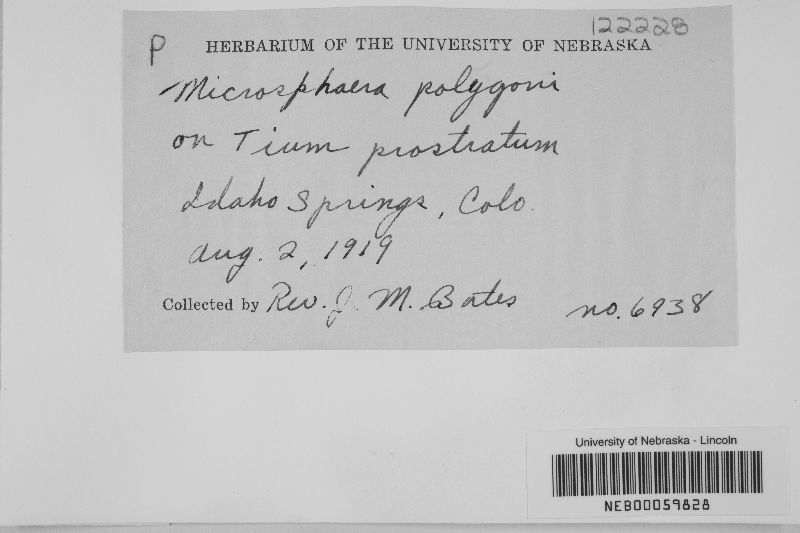 122228
P HERBARIUM OF THE UNIVERSITY OF NEBRASKA
Microsphaera polygoni
on Tium prostratum
Idaho Springs, Colo.
Aug. 2, 1919
Collected by Rev. J. M. Bates no. 6938
University of Nebraska - Lincoln
NEB00059828